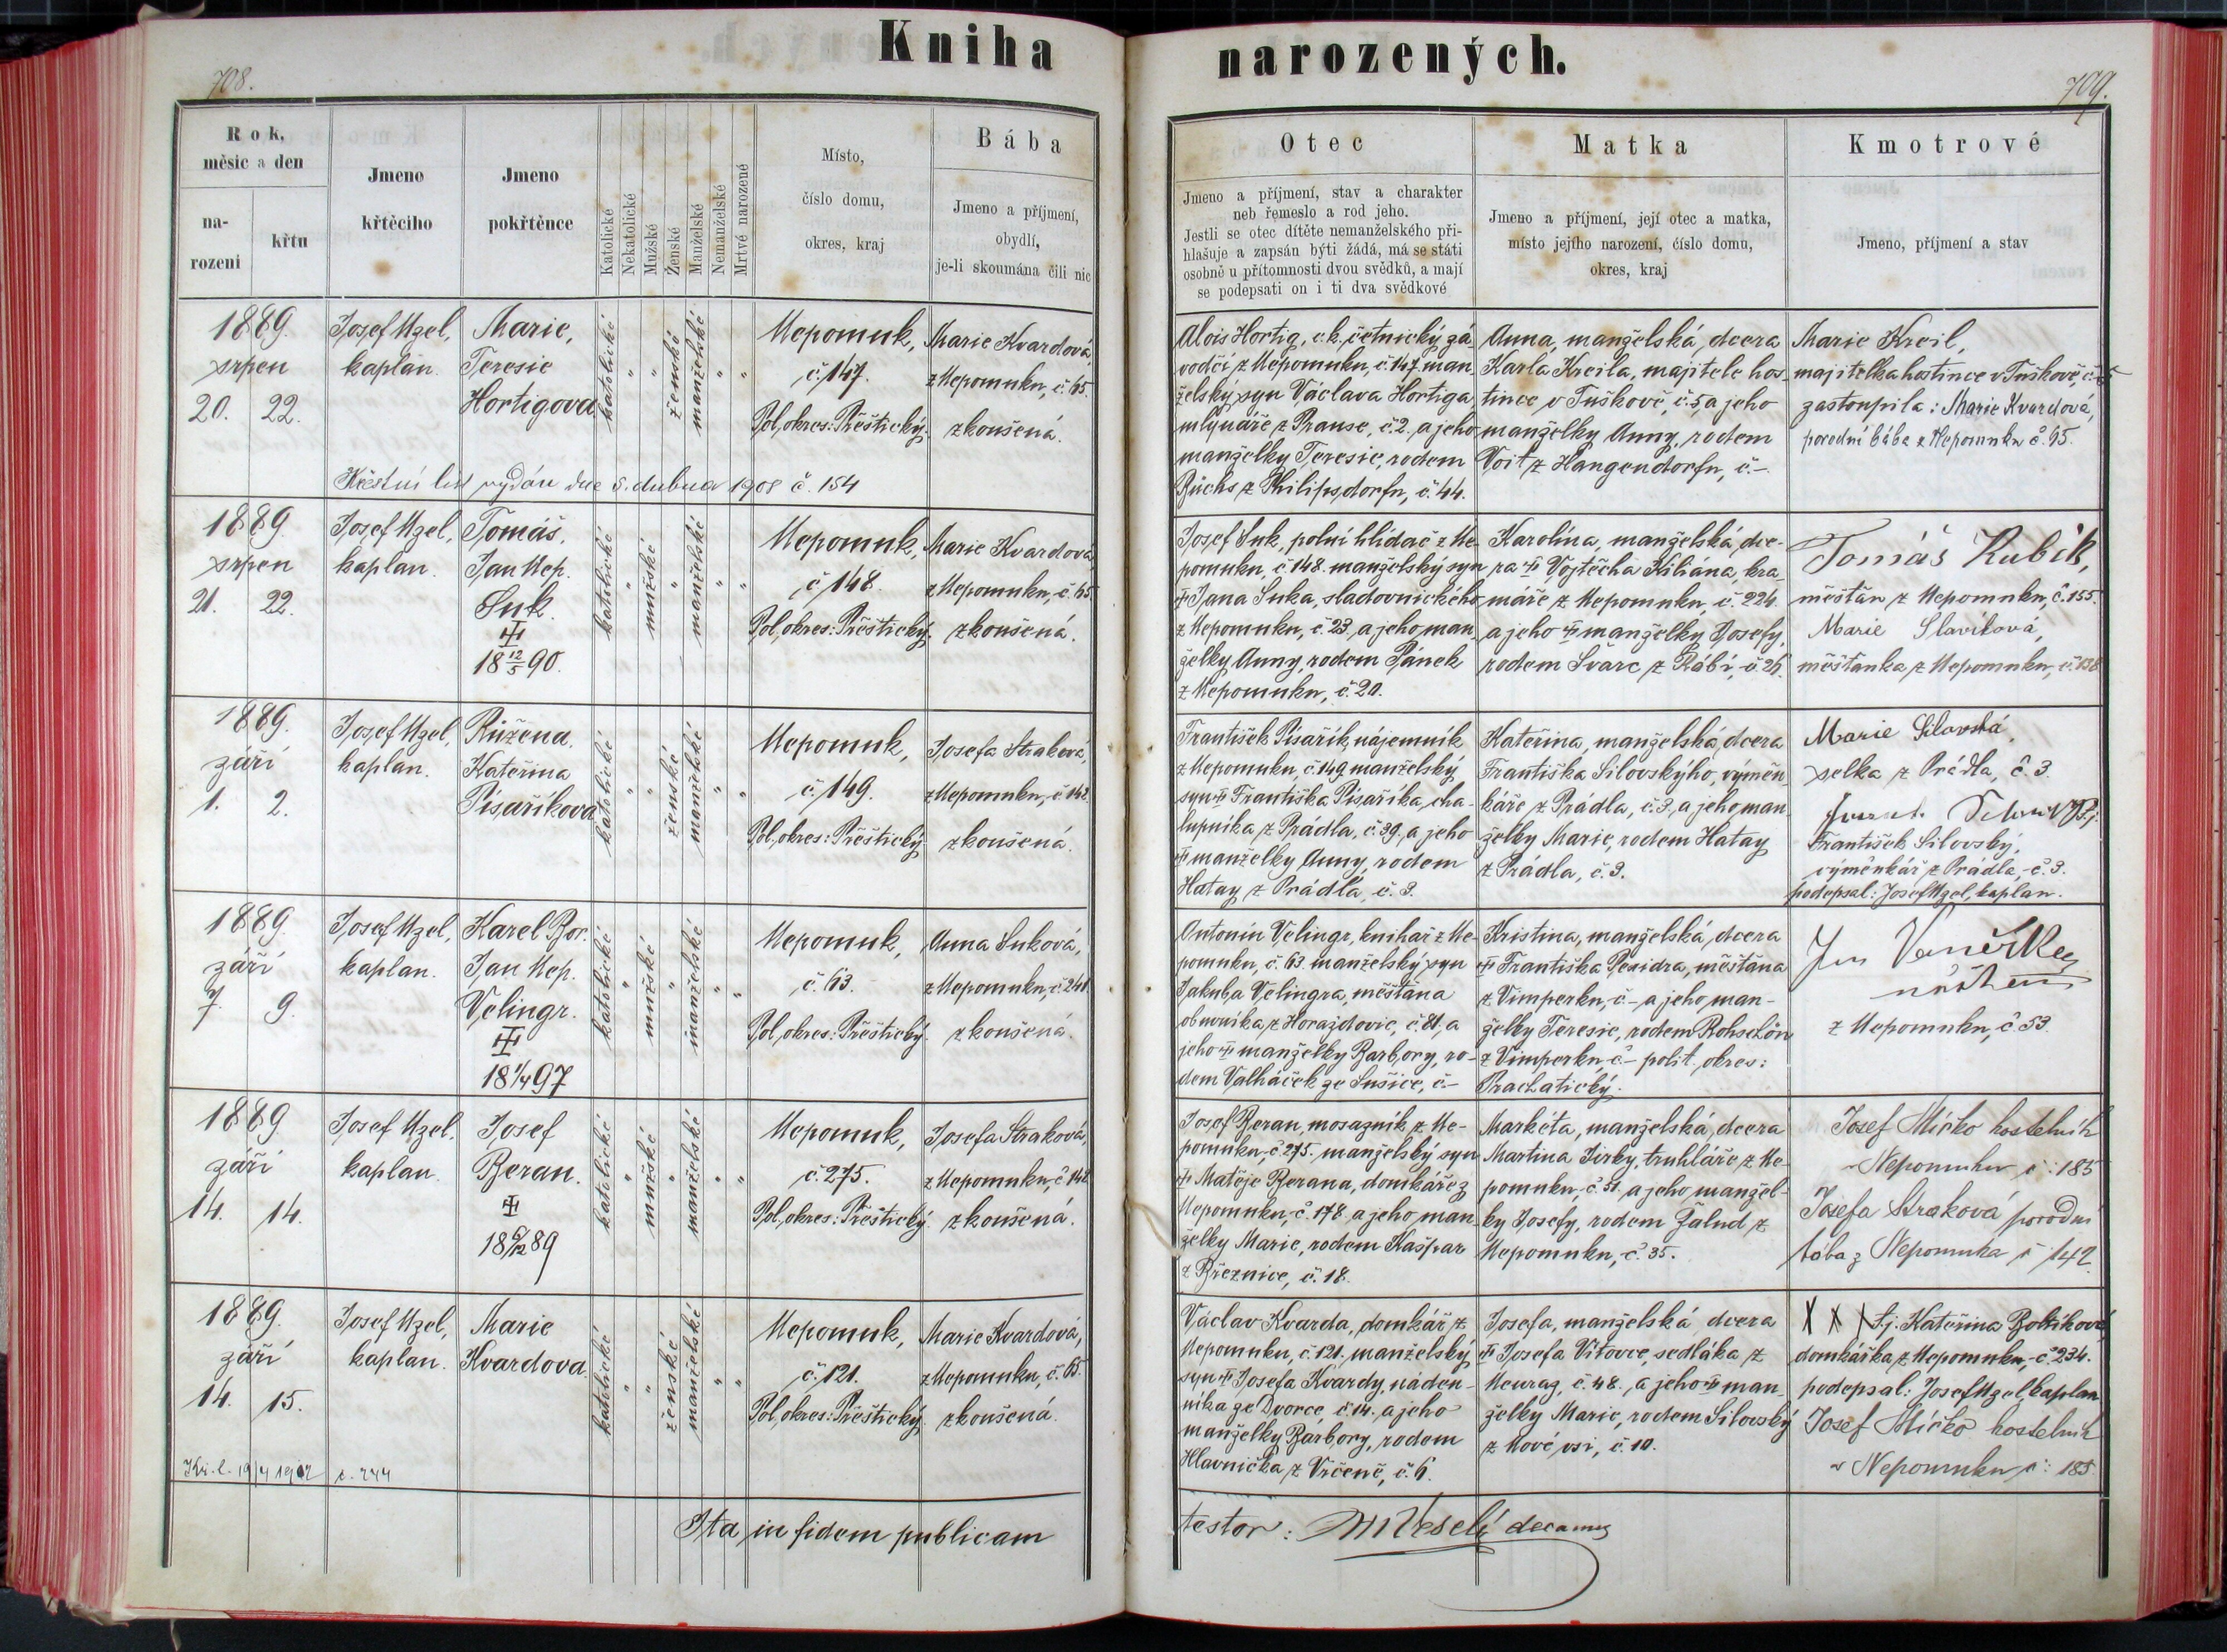 Kniha narozených.
708.
709.
Rok,
měsíc a den
na-
rození
křtu
Jmeno
křtícího
Jmeno
pokřtěnce
Katolické
Nekatolické
Mužské
Ženské
Manželské
Nemanželské
Mrtvě narozené
Místo,
číslo domu,
okres, kraj
Bába
Jmeno a příjmení,
obydlí,
je-li skoumána čili nic
Otec
Jmeno a příjmení, stav a charakter
neb řemeslo a rod jeho.
Jestli se otec dítěte nemanželského při-
hlašuje a zapsán býti žádá, má se státi
osobně u přítomnosti dvou svědků, a mají
se podepsati on i ti dva svědkové
Matka
Jmeno a příjmení, její otec a matka,
místo jejího narození, číslo domu,
okres, kraj
Kmotrové
Jmeno, příjmení a stav
1889.
srpen
20. 22.
Josef Uzel,
kaplan.
Marie,
Teresie
Hortigova
katolické
"
"
ženské
manželské
"
"
Nepomuk,
č. 147.
Pol. okres: Přeštický.
Marie Kvardová,
z Nepomuku, č. 65.
zkoušená.
Křestní list vydán dne 5. dubna 1908 č. 154
Alois Hortig, c.k. četnický zá
vodčí z Nepomuku, č. 147 man
želský syn Václava Hortiga
mlynáře z Prause, č. 2. a jeho
manželky Teresie, rodem
Büchs z Philipsdorfu, č. 44.
Anna, manželská, dcera
Karla Kreila, majitele hos-
tince v Tuškově, č. 5, a jeho
manželky Anny, rodem
Voit z Hangendorfu, č. -
Marie Kreil,
majitelka hostince v Tuškově č. 5
zastoupila: Marie Kvardová,
porodní bába z Nepomuku č. 65.
1889.
srpen
21. 22.
Josef Uzel,
kaplan.
Tomáš,
Jan Nep.
Suk
18 12/5 90.
katolické
"
mužské
"
manželské
"
"
Nepomuk,
č. 148.
Pol. okres: Přeštický.
Marie Kvardová,
z Nepomuku, č. 65
zkoušená.
Josef Suk, polní hlídač z Ne-
pomuku, č. 148. manželský syn
Jana Suka, sladovnického
z Nepomuku, č. 23, a jeho man
želky Anny, rodem Pánek
z Nepomuku, č. 20.
Karolína, manželská, dce-
ra Vojtěcha Kiliána, kra-
máře z Nepomuku, č. 224.
a jeho manželky Josefy,
rodem Švarc, z Rábí, č. 26.
Tomáš Kubík,
měšťan z Nepomuku, č. 155.
Marie Slavíková,
měšťanka z Nepomuku, č. 138
1889.
září
1. 2.
Josef Uzel,
kaplan.
Růžena,
Kateřina
Písaříkova
katolické
"
"
ženské
manželské
"
"
Nepomuk,
č. 149.
Pol. okres: Přeštický.
Josefa Straková,
z Nepomuku, č. 142
zkoušená.
František Písařík, nájemník
z Nepomuku, č. 149 manželský
syn Františka Písaříka, cha-
lupníka z Prádla, č. 39, a jeho
manželky Anny, rodem
Hatay z Prádla, č. 3.
Kateřina, manželská, dcera
Františka Silovskýho, výměn
káře z Prádla, č. 3, a jeho man
želky Marie, rodem Hatay
z Prádla, č. 3.
Marie Silovská,
selka z Prádla, č. 3.
František Silovský,
výměnkář z Prádla, č. 3.
podepsal: Josef Uzel, kaplan.
1889.
září
7. 9.
Josef Uzel,
kaplan.
Karel Bor.
Jan Nep.
Velingr.
18 1/4 97
katolické
"
mužské
"
manželské
"
"
Nepomuk,
č. 63.
Pol. okres: Přeštický.
Anna Suková,
z Nepomuku, č. 241
zkoušená.
Antonín Velingr, knihař z Ne-
pomuku, č. 63. manželský syn
Jakuba Velingra, měšťana
obuvníka z Horažďovic, č. 81, a
jeho manželky Barbory, ro-
dem Valháček ze Sušice, č. -
Kristina, manželská, dcera
Františka Pexidra, měšťana
z Vimperku, č. - a jeho man-
želky Teresie, rodem Rohschön
z Vimperku, č. - polit. okres:
Prachatický.
Jan
z Nepomuku, č. 53.
1889
září
14. 14.
Josef Uzel,
kaplan.
Josef
Beran.
18 6/12 89
katolické
"
mužské
"
manželské
"
"
Nepomuk,
č. 275.
Pol. okres: Přeštický.
Josefa Straková,
z Nepomuku, č. 142
zkoušená.
Josef Beran, mosazník z Ne-
pomuku, č. 275. manželský syn
Matěje Berana, domkáře z
Nepomuku, č. 178, a jeho man
želky Marie, rodem Kašpar
z Březnice, č. 18.
Markéta, manželská, dcera
Martina Jirky, truhláře z Ne-
pomuku, č. 51. a jeho manžel-
ky Josefy, rodem Žalud z
Nepomuku, č. 35.
Josef Míčko kostelník
v Nepomuku č: 185
Josefa Straková porodní
bába z Nepomuka č 142
1889.
září
14. 15.
Josef Uzel,
kaplan.
Marie
Kvardova
katolické
"
"
ženské
manželské
"
"
Nepomuk,
č. 121.
Pol. okres: Přeštický.
Marie Kvardová,
z Nepomuku, č. 65.
zkoušená.
Kř. l. 19/4 1912 č. 244
Václav Kvarda, domkář z
Nepomuku, č. 121, manželský
syn Josefa Kvardy, náden-
níka ze Dvorce, č. 14. a jeho
manželky Barbory, rodem
Hlavnička z Vrčeně, č. 6.
Josefa, manželská dcera
Josefa Vítovce, sedláka z
Neuraz, č. 48., a jeho man-
želky Marie, rodem Silovský
z Nové vsi, č. 10.
X X X t.j. Kateřina
domkářka z Nepomuku, č. 234.
podepsal: Josef Uzel, kaplan
Josef Míčko kostelník
v Nepomuku č: 185.
Ita in fidem publicam
testor: Veselí decanus